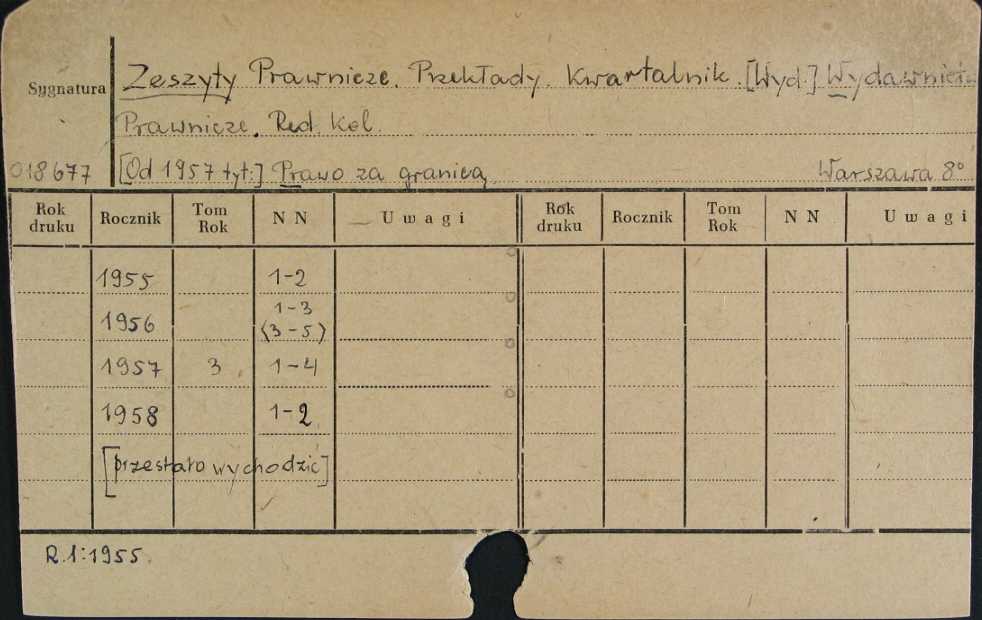 Zeszyty Prawnicze. Przekłady. Kwartalnik. [Wyd.] Wydawnictw.
Sygnatura
Prawnicze. Red. Kol.
018677 [Od 1957 tyt:] Prawo za granicą Warszawa 8°
Rok druku Rocznik Tom Rok N N Uwagi Rok druku Rocznik Tom Rok N N Uwagi
1955 1-2
1956 1-3 (3-5)
1957 3 1-4
1958 1-2
[przestało wychodzić]
R.1:1955.